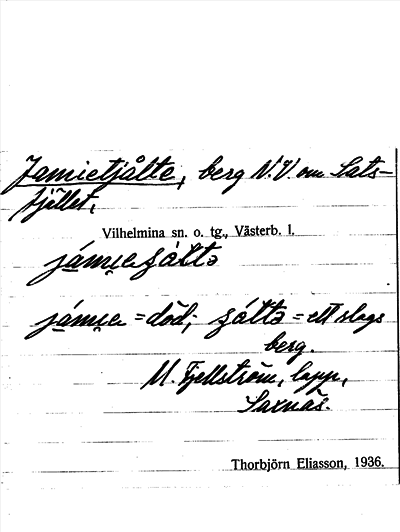 Jamietjålte, berg N.V. om Sats-
fjället,
Vilhelmina sn. o. tg., Västerb. l.
= död; = ett slags
berg.
M. Fjellström, lapp,
Saxnäs.
Thorbjörn Eliasson, 1936.